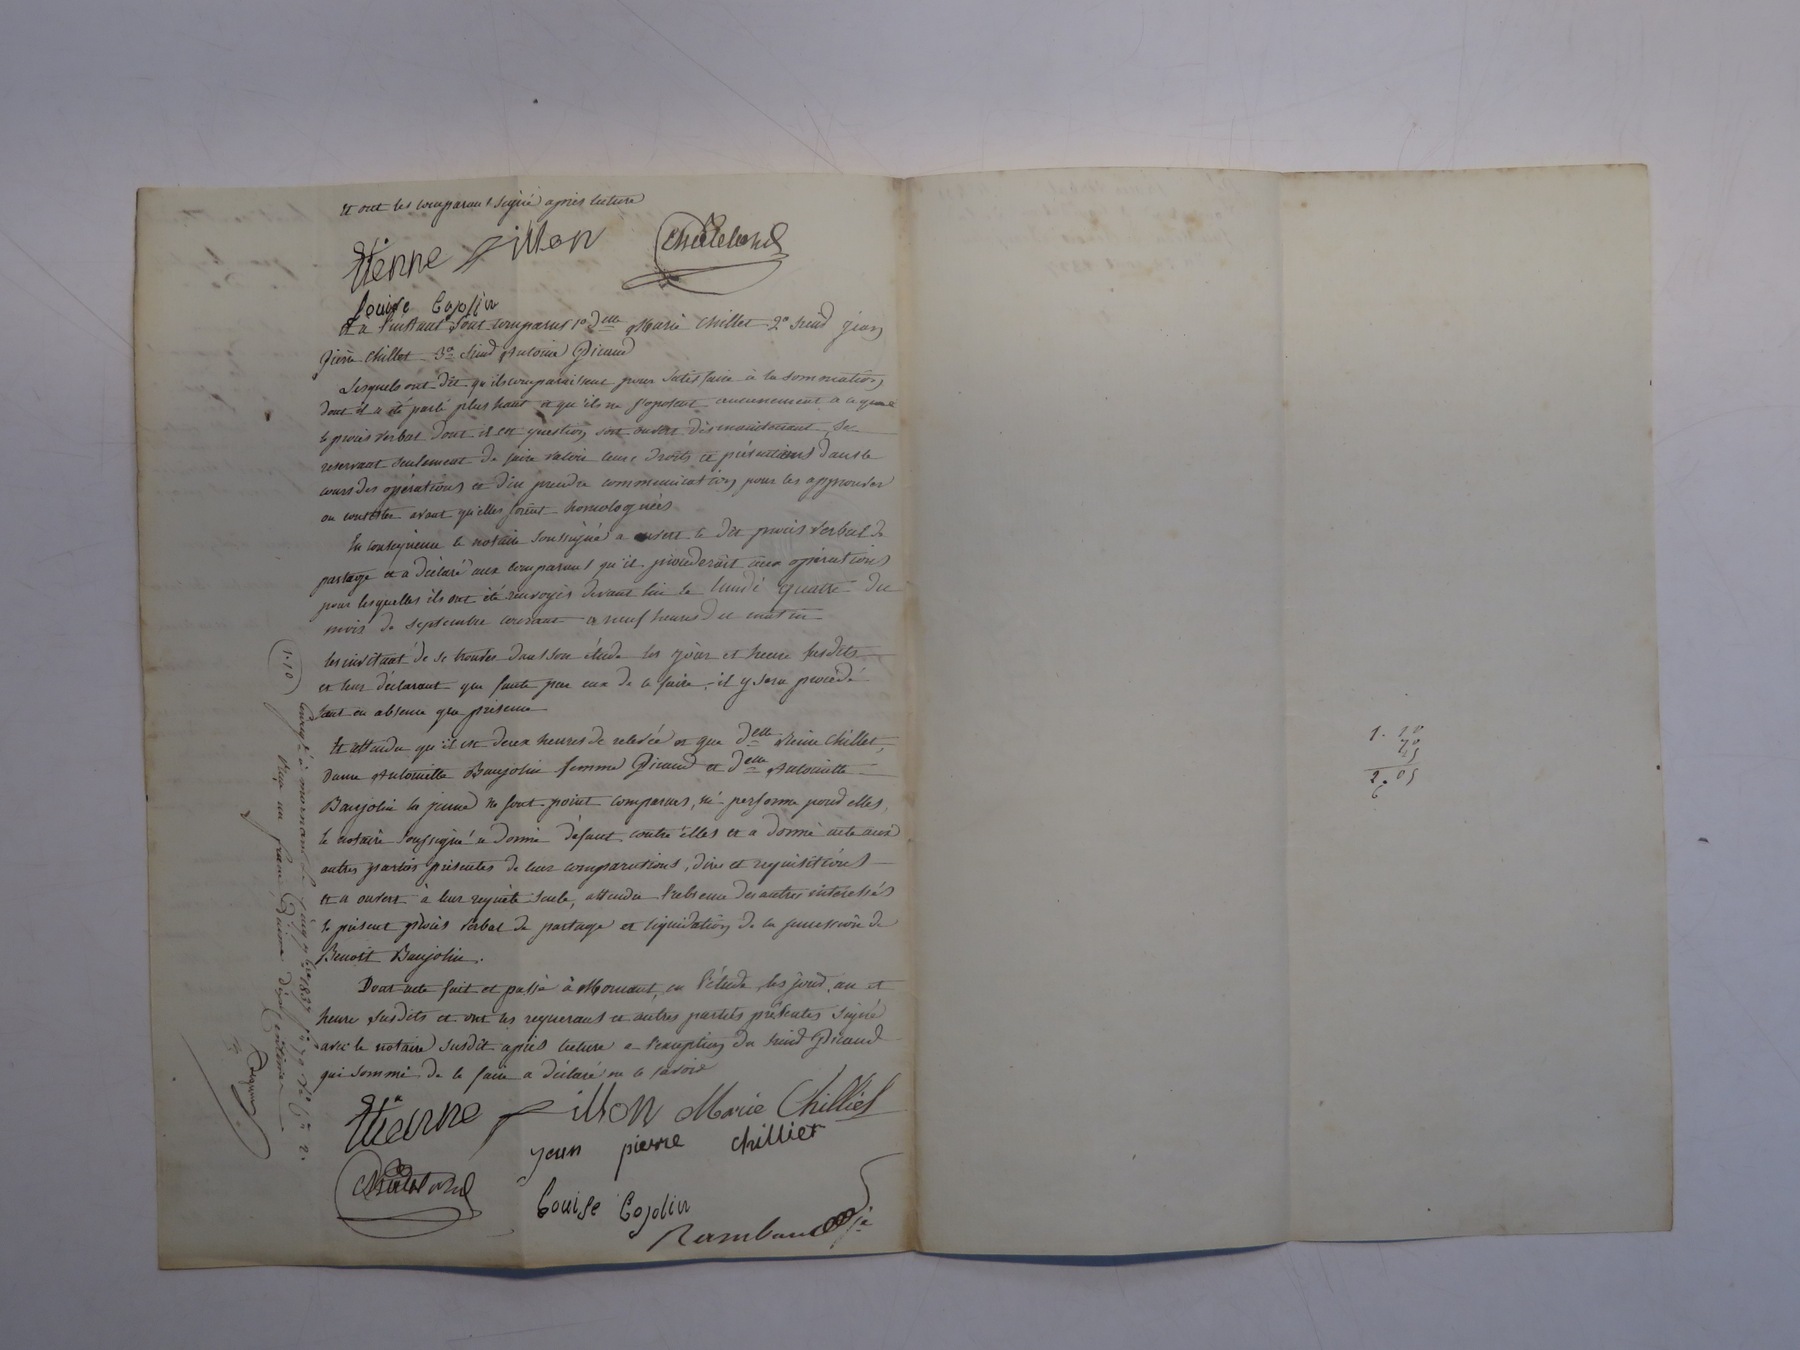 Et ont les comparants signé après lecture
Etienne Fillon Chatelard
Louise Cojolin
Et à l'instant sont comparus 1º Delle Marie Chillet 2º Sieur Jean
Pierre Chillet 3º Sieur Antoine Picaud
Lesquels ont dit qu'ils comparaissent pour satisfaire à la sommation
dont il a été parlé plus haut et qu'ils ne s'oposent aucunement à ce que
le procès verbal dont il est question soit ouvert dès maintenant, se
reservant seulement de faire valoir leurs droits et prétentions dans le
cours des opérations et d'en prendre communication pour les approuver
ou contester avant qu'elles soient homologuées
En conséquence le notaire soussigné a ouvert le dit procès verbal de
partage et a déclaré aux comparants qu'il procéderait aux opérations
pour lesquelles ils ont été renvoyés devant lui le lundi quatre du
mois de septembre courant à neuf heures du matin
les invitant de se trouver dans son étude les jour et heure susdits
et leur déclarant que faute par eux de le faire, il y sera procédé
tant en absence que présence
Et attendu qu'il est deux heures de relevée et que Delle Reine Chillet,
Dame Antoinette Baujolin femme Picaud et Delle Antoinette
Baujolin la jeune ne sont point comparues, ni personne pour elles,
le notaire soussigné a donné défaut contre elles et a donné acte aux
autres parties présentes de leur comparutions, dires et réquisitions
et a ouvert à leur requête seule, attendu l'absence des autres intéressés
le présent procès verbal de partage et liquidation de la succession de
Benoît Baujolin.
Dont acte fait et passé à Mornant, en l'étude, les jour, an et
heure susdits et ont les requerants et autres parties présentes signé
avec le notaire susdit après lecture à l'exception du sieur Picaud
qui sommé de le faire a déclaré ne le savoir
Etienne Fillon Marie Chilliet
Jean pierre chillier
Chatelard
Louise Cojolin
Rambaud
1.10
Enregistré à mornant le
Reçu un franc dixième dix centimes
1. 10
70
25
2. 05